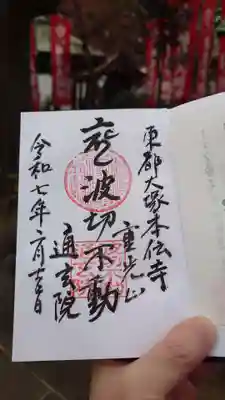 東都大塚本伝寺
重光山
波切不動
通玄院
令和七年 月 日